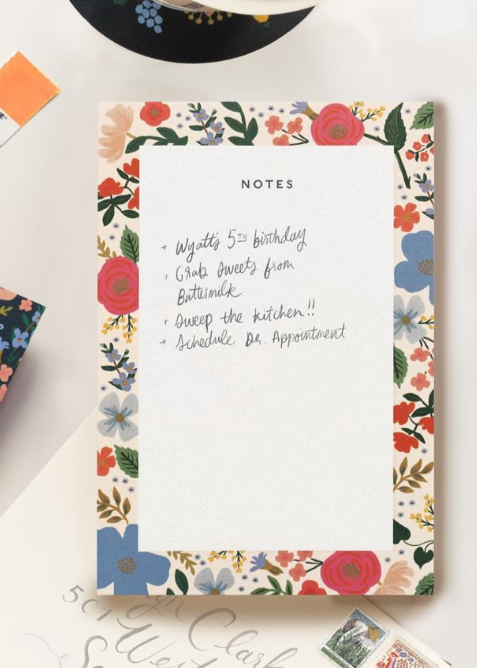 NOTES
+ Wyatt's 5TH birthday
+ Grab sweets from
Buttermilk
+ Sweep the kitchen!!
+ Schedule Dr. Appointment
501
Clark
West